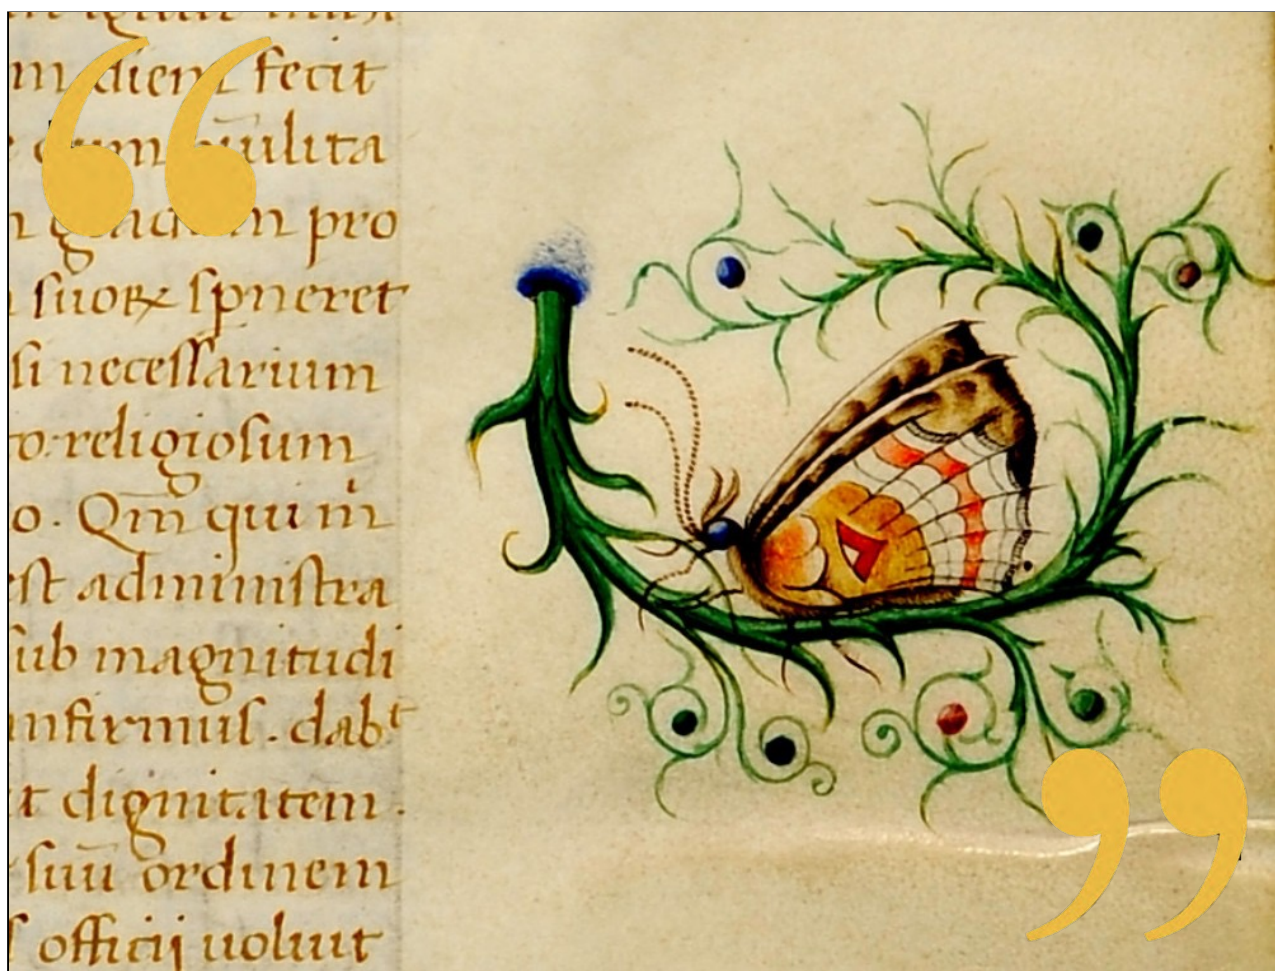 diem fecit
pro
suoꝝ sperneret
si necessarium
religiosum
o. Qm̄ qui m̄
est administra
sub magnitudi
infirmus. dabt
t dignitatem.
suū ordinem
officij uoluit